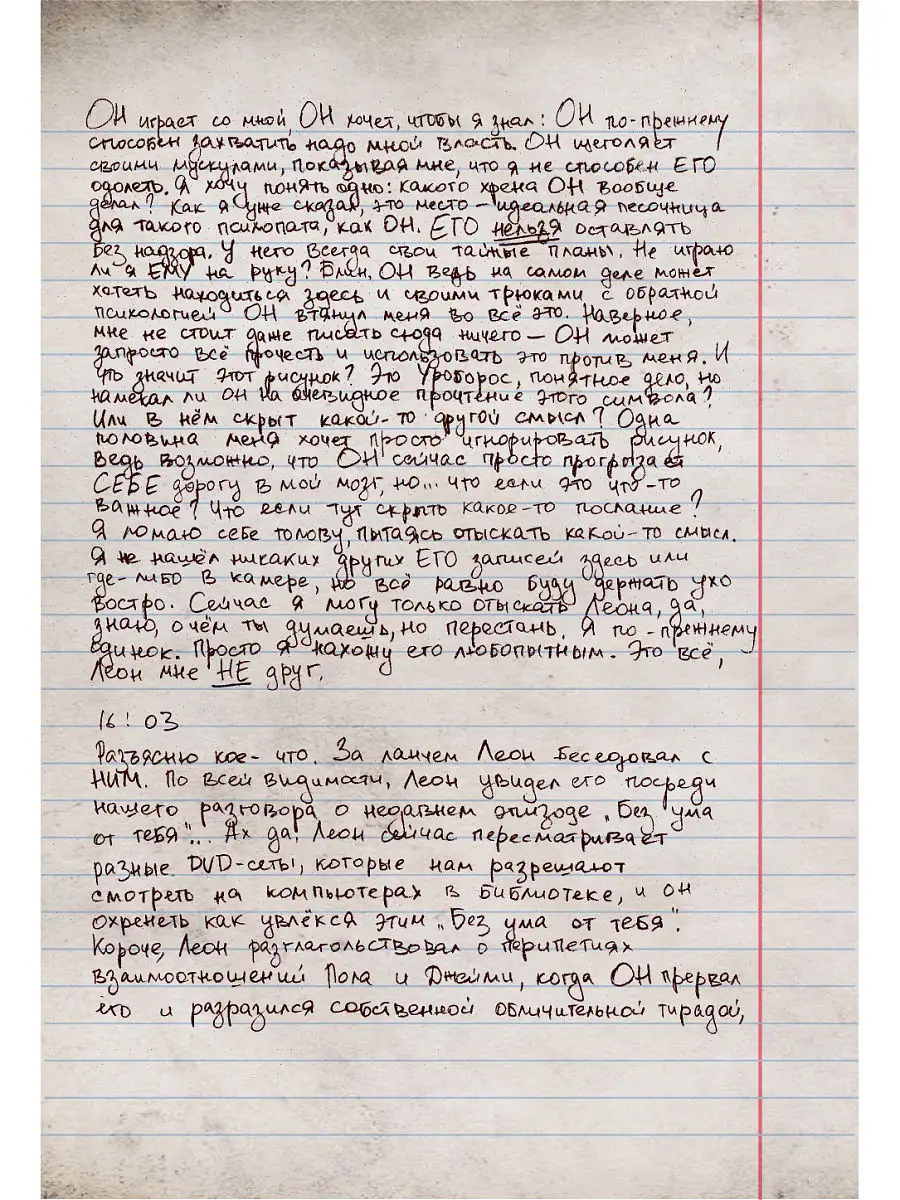 ОН играет со мной, ОН хочет, чтобы я знал: ОН по-прежнему
способен захватить надо мной власть. ОН щеголяет
своими мускулами, показывая мне, что я не способен ЕГО
одолеть. Я хочу понять одно: какого хрена ОН вообще
делал? Как я уже сказал, это место – идеальная песочница
для такого психопата, как ОН. ЕГО нельзя оставлять
без надзора. У него всегда свои тайные планы. Не играю
ли я ЕМУ на руку? Блин. ОН ведь на самом деле может
хотеть находиться здесь и своими трюками с обратной
психологией ОН втянул меня во всё это. Наверное,
мне не стоит даже писать сюда ничего – ОН может
запросто всё прочесть и использовать это против меня. И
что значит этот рисунок? Это Уроборос, понятное дело, но
намекал ли ОН на очевидное прочтение этого символа?
Или в нём скрыт какой-то другой смысл? Одна
половина меня хочет просто игнорировать рисунок,
ведь возможно, что ОН сейчас просто прогрызает
СЕБЕ дорогу в мой мозг, но... что если это что-то
важное? Что если тут скрыто какое-то послание?
Я ломаю себе голову, пытаясь отыскать какой-то смысл.
Я не нашёл никаких других ЕГО записей здесь или
где-либо в камере, но всё равно буду держать ухо
востро. Сейчас я могу только отыскать Леона, да,
знаю, о чём ты думаешь, но перестань. Я по-прежнему
одинок. Просто я нахожу его любопытным. Это всё,
Леон мне НЕ друг.
16:03
Разъясню кое-что. За ланчем Леон беседовал с
НИМ. По всей видимости, Леон увидел его посреди
нашего разговора о недавнем эпизоде „Без ума
от тебя"... Ах да, Леон сейчас пересматривает
разные DVD-сеты, которые нам разрешают
смотреть на компьютерах в библиотеке, и он
охренеть как увлёкся этим „Без ума от тебя".
Короче, Леон разглагольствовал о перипетиях
взаимоотношений Пола и Джейми, когда ОН прервал
его и разразился собственной обличительной тирадой,